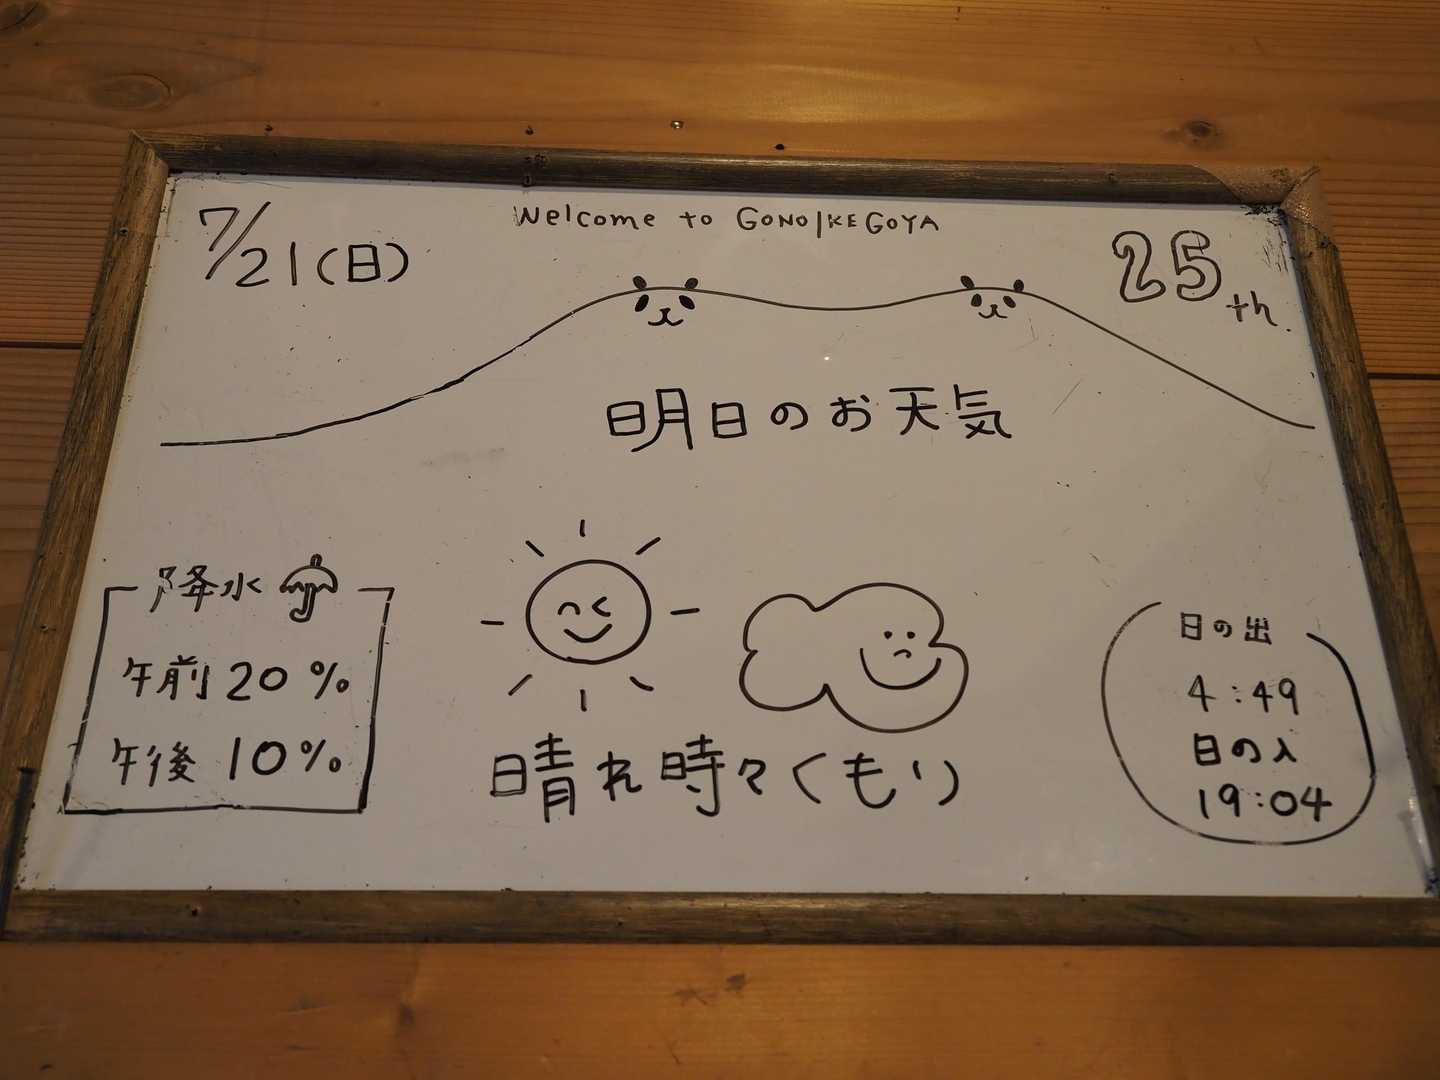 Welcome to GONOIKEGOYA
7/21(日)
25th.
明日のお天気
降水
午前 20%
午後 10%
晴れ時々くもり
日の出
4:49
日の入
19:04